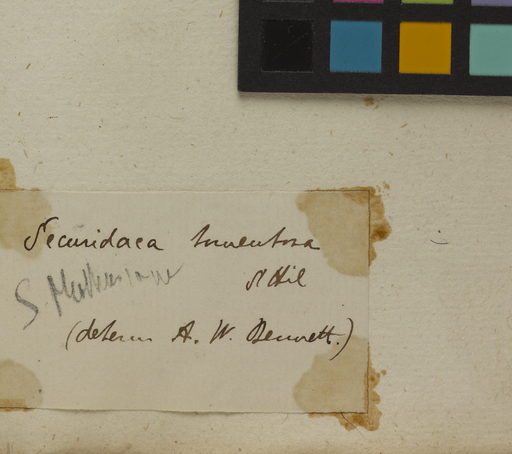 Securidaca tomentosa
St Hil
S.
(determ A. W. Bennett.)